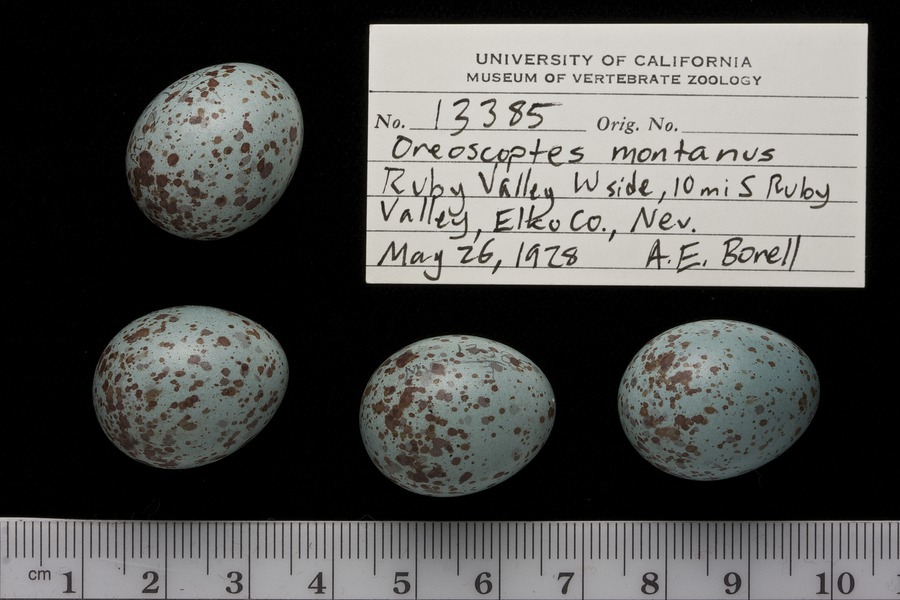 UNIVERSITY OF CALIFORNIA
MUSEUM OF VERTEBRATE ZOOLOGY
No. 13385 Orig. No.
Oreoscoptes montanus
Ruby Valley W side, 10 mi S Ruby
Valley, Elko Co., Nev.
May 26, 1928 A.E. Borell
cm 1 2 3 4 5 6 7 8 9 10